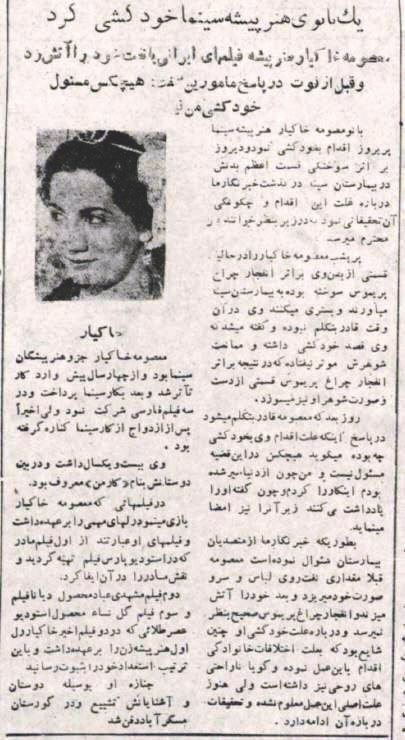 یک بانوی هنرپیشه سینما خودکشی کرد
معصومه خاکیار هنرپیشه فیلمهای ایرانی با نفت خود را آتش زد
و قبل از فوت در پاسخ مامورین گفت: هیچکس مسئول
خودکشی من نیست
بانو معصومه خاکیار هنرپیشه سینما
پریروز اقدام بخودکشی نمود و دیروز
بر اثر سوختگی قسمت اعظم بدنش
در بیمارستان سینا درگذشت خبرنگار ما
درباره علت این اقدام و چگونگی
آن تحقیقاتی نموده که در زیر بنظر خوانندگان
محترم میرسد
پریشب معصومه خاکیار را در حالیکه
قسمتی از بدن وی بر اثر انفجار چراغ
پریموس سوخته بوده به بیمارستان سینا
میآورند و بستری میکنند وی در آن
وقت قادر بتکلم نبوده و گفته میشد که
وی قصد خودکشی داشته و ممانعت
شوهرش موثر نیفتاده که در نتیجه بر اثر
انفجار چراغ پریموس قسمتی از دست
و صورت شوهر او نیز میسوزد.
روز بعد که معصومه قادر بتکلم میشود
در پاسخ اینکه علت اقدام وی بخودکشی
چه بوده میگوید هیچکس در این قضیه
مسئول نیست و من چون از دنیا سیر شده
بودم اینکار را کردم و چون گفته او را
یادداشت می کنند زیر آنرا نیز امضا
مینماید.
بطوریکه خبرنگار ما از متصدیان
بیمارستان سئوال نموده است معصومه
قبلا مقداری نفت روی لباس و سر و
صورت خود میریزد و بعد خود را آتش
میزند و انفجار چراغ پریموس صحیح بنظر
نمیرسد و درباره علت خودکشی او چنین
شایع بود که بعلت اختلافات خانوادگی
اقدام باین عمل نموده و گویا ناراحتی
های روحی نیز داشته است ولی هنوز
علت اصلی این عمل معلوم نشده و تحقیقات
در باره آن ادامه دارد.
خاکیار
معصومه خاکیار جزو هنرپیشگان
سینما بود و از چهار سال پیش وارد کار
تآتر شد و بعد بکار سینما پرداخت و در
سه فیلم فارسی شرکت نمود ولی اخیراً
پس از ازدواج از کار سینما کناره گرفته
بود.
وی بیست و یکسال داشت و در بین
دوستانش بنام «کارمن» معروف بود.
در فیلمهائی که معصومه خاکیار
بازی مینمود رلهای مهمی را بر عهده داشت
و فیلمهای او عبارتند از اول فیلم مادر
که در استودیو پارس فیلم تهیه گردید و
نقش مادر را در آن ایفا کرد.
دوم فیلم مشهدی عباد محصول دیانا فیلم
و سوم فیلم گل نساء محصول استودیو
عصر طلائی که در دو فیلم اخیر خاکیار رل
اول هنرپیشه زن را بر عهده داشت و باین
ترتیب استعداد خود را بثبوت رسانید
جنازه او بوسیله دوستان
و آشنایانش تشییع و در گورستان
مسگر آباد دفن شد